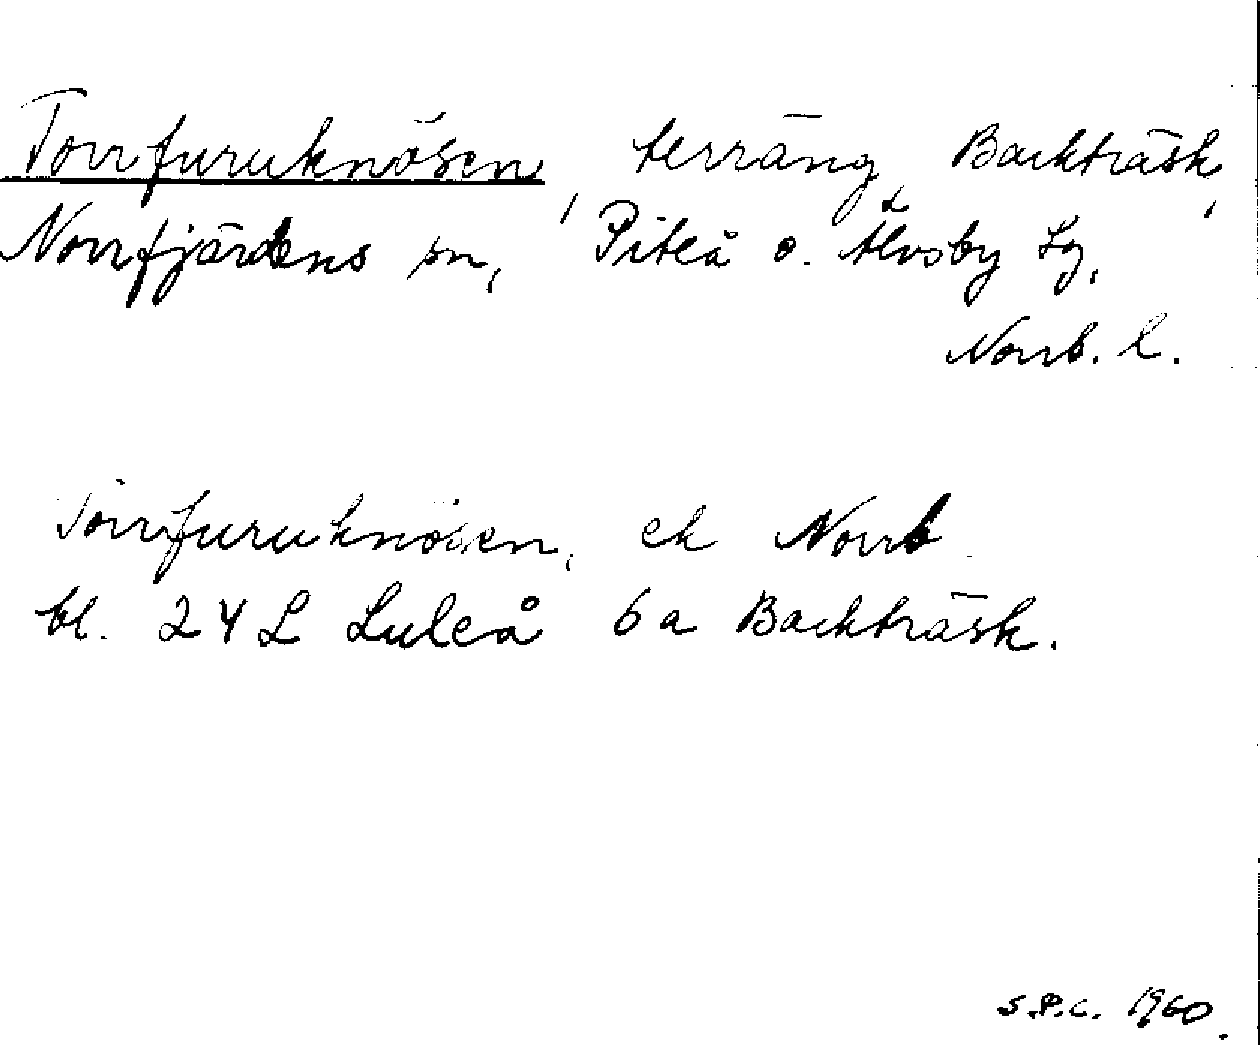 Torrfuruknösen, terräng, Backträsk,
Norrfjärdens sn, Piteå o. Älvsby tg,
Norrb. l.
Torrfuruknösen, ek Norrb
bl. 24 L Luleå 6 a Backträsk.
S.P.C. 1960.